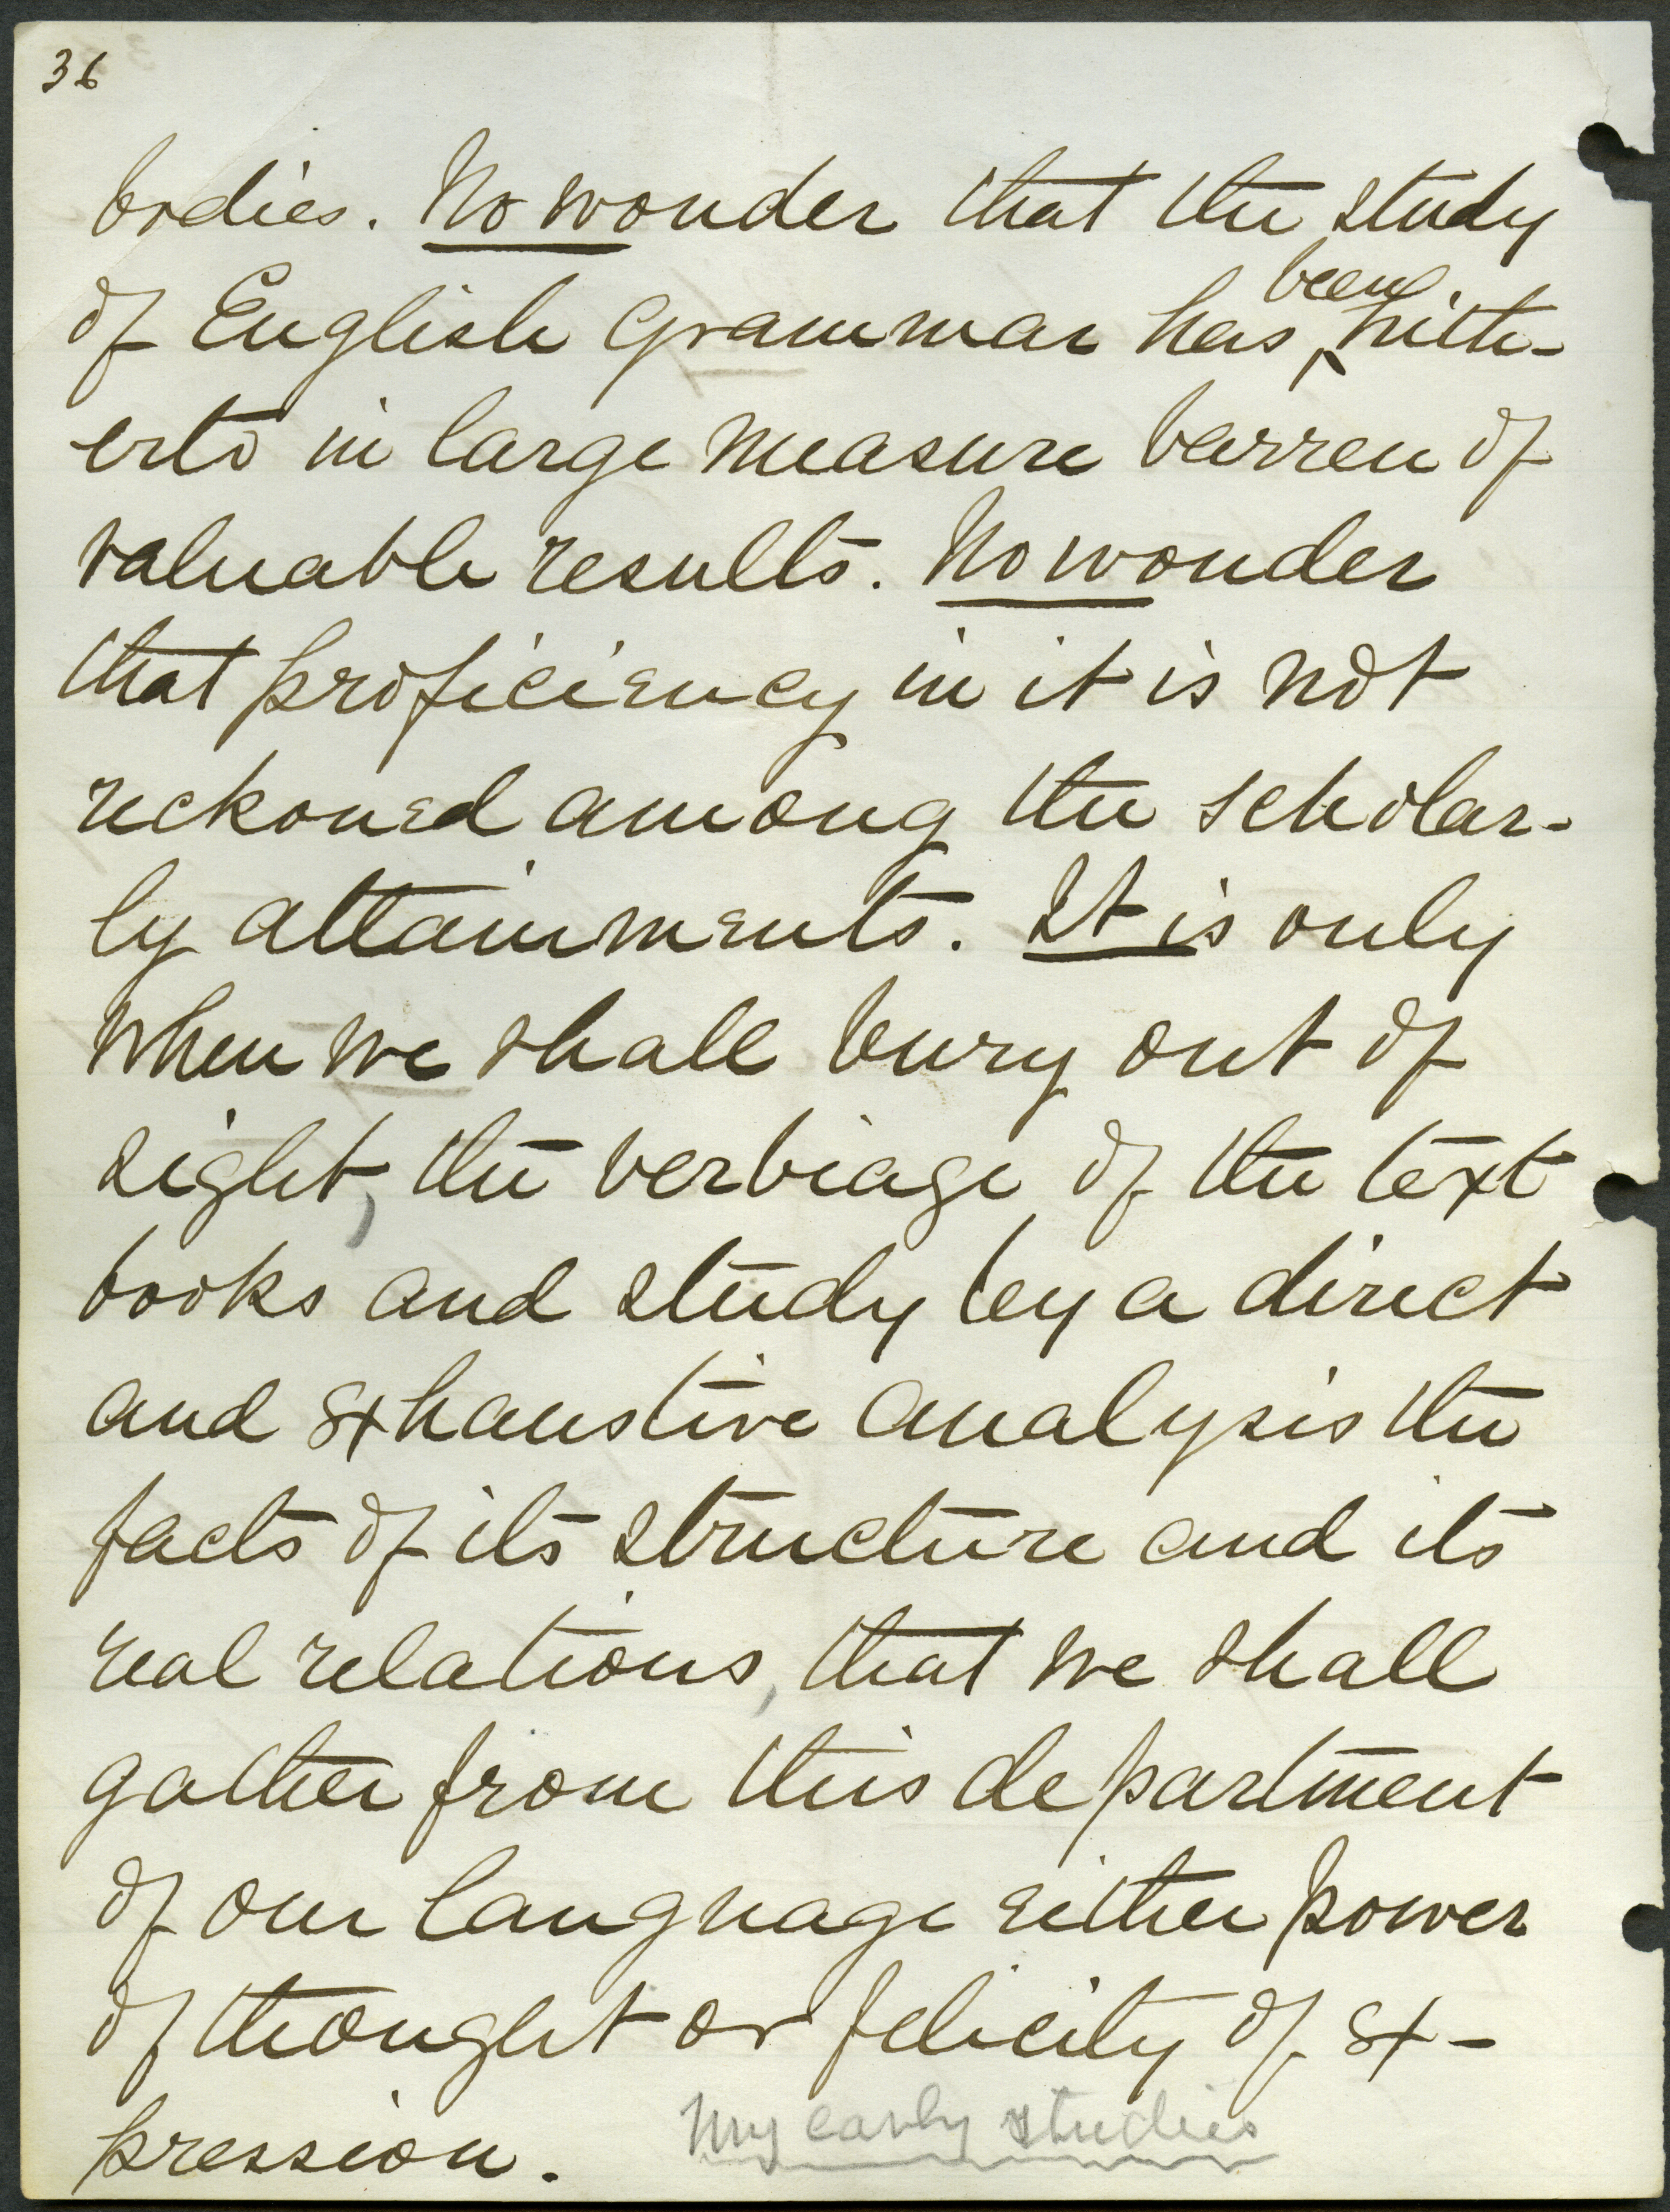 36
bodies. No wonder that the study
been
of English Grammar has ‸ hith-
erto in large measure barren of
valuable results. No wonder
that proficiency in it is not
reckoned among the scholar-
ly attainments. It is only
when we shall bury out of
sight, the verbiage of the text
books and study by a direct
and exhaustive analysis the
facts of its structure and its
real relations, that we shall
gather from this department
of our language either power
of thought or felicity of ex-
pression.
My early studies